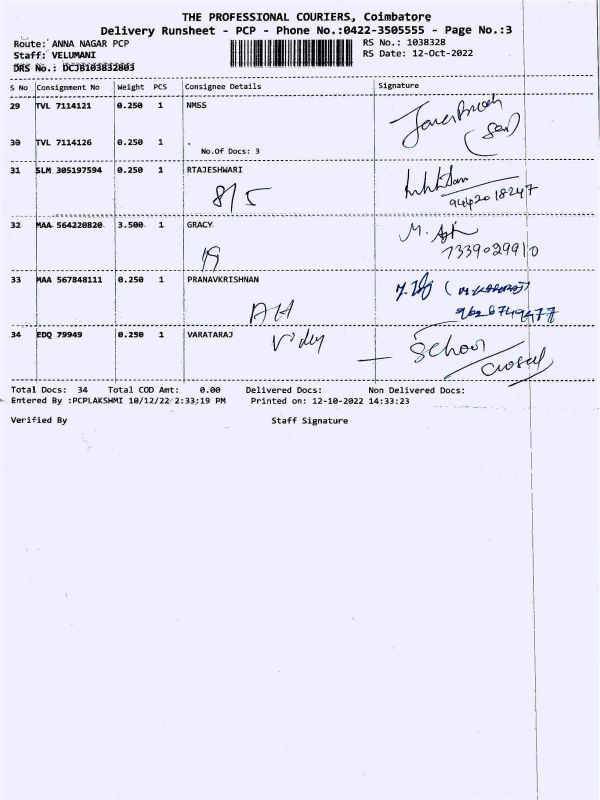 THE PROFESSIONAL COURIERS, Coimbatore
Delivery Runsheet - PCP - Phone No.:0422-3505555 - Page No.:3
Route: ANNA NAGAR PCP RS No.: 1038328
Staff: VELUMANI RS Date: 12-Oct-2022
DRS No.: DCJB103832803
S No Consignment No Weight PCS Consignee Details Signature
29 TVL 7114121 0.250 1 NMSS
(Son)
30 TVL 7114126 0.250 1 .
No.Of Docs: 3
31 SLM 305197594 0.250 1 RTAJESHWARI
8/5
9442018247
32 MAA 564220820 3.500 1 GRACY
19
7339029910
33 MAA 567848111 0.250 1 PRANAVKRISHNAN
AH
34 EDQ 79949 0.250 1 VARATARAJ
School
closed
Total Docs: 34 Total COD Amt: 0.00 Delivered Docs: Non Delivered Docs:
Entered By :PCPLAKSHMI 10/12/22 2:33:19 PM Printed on: 12-10-2022 14:33:23
Verified By Staff Signature